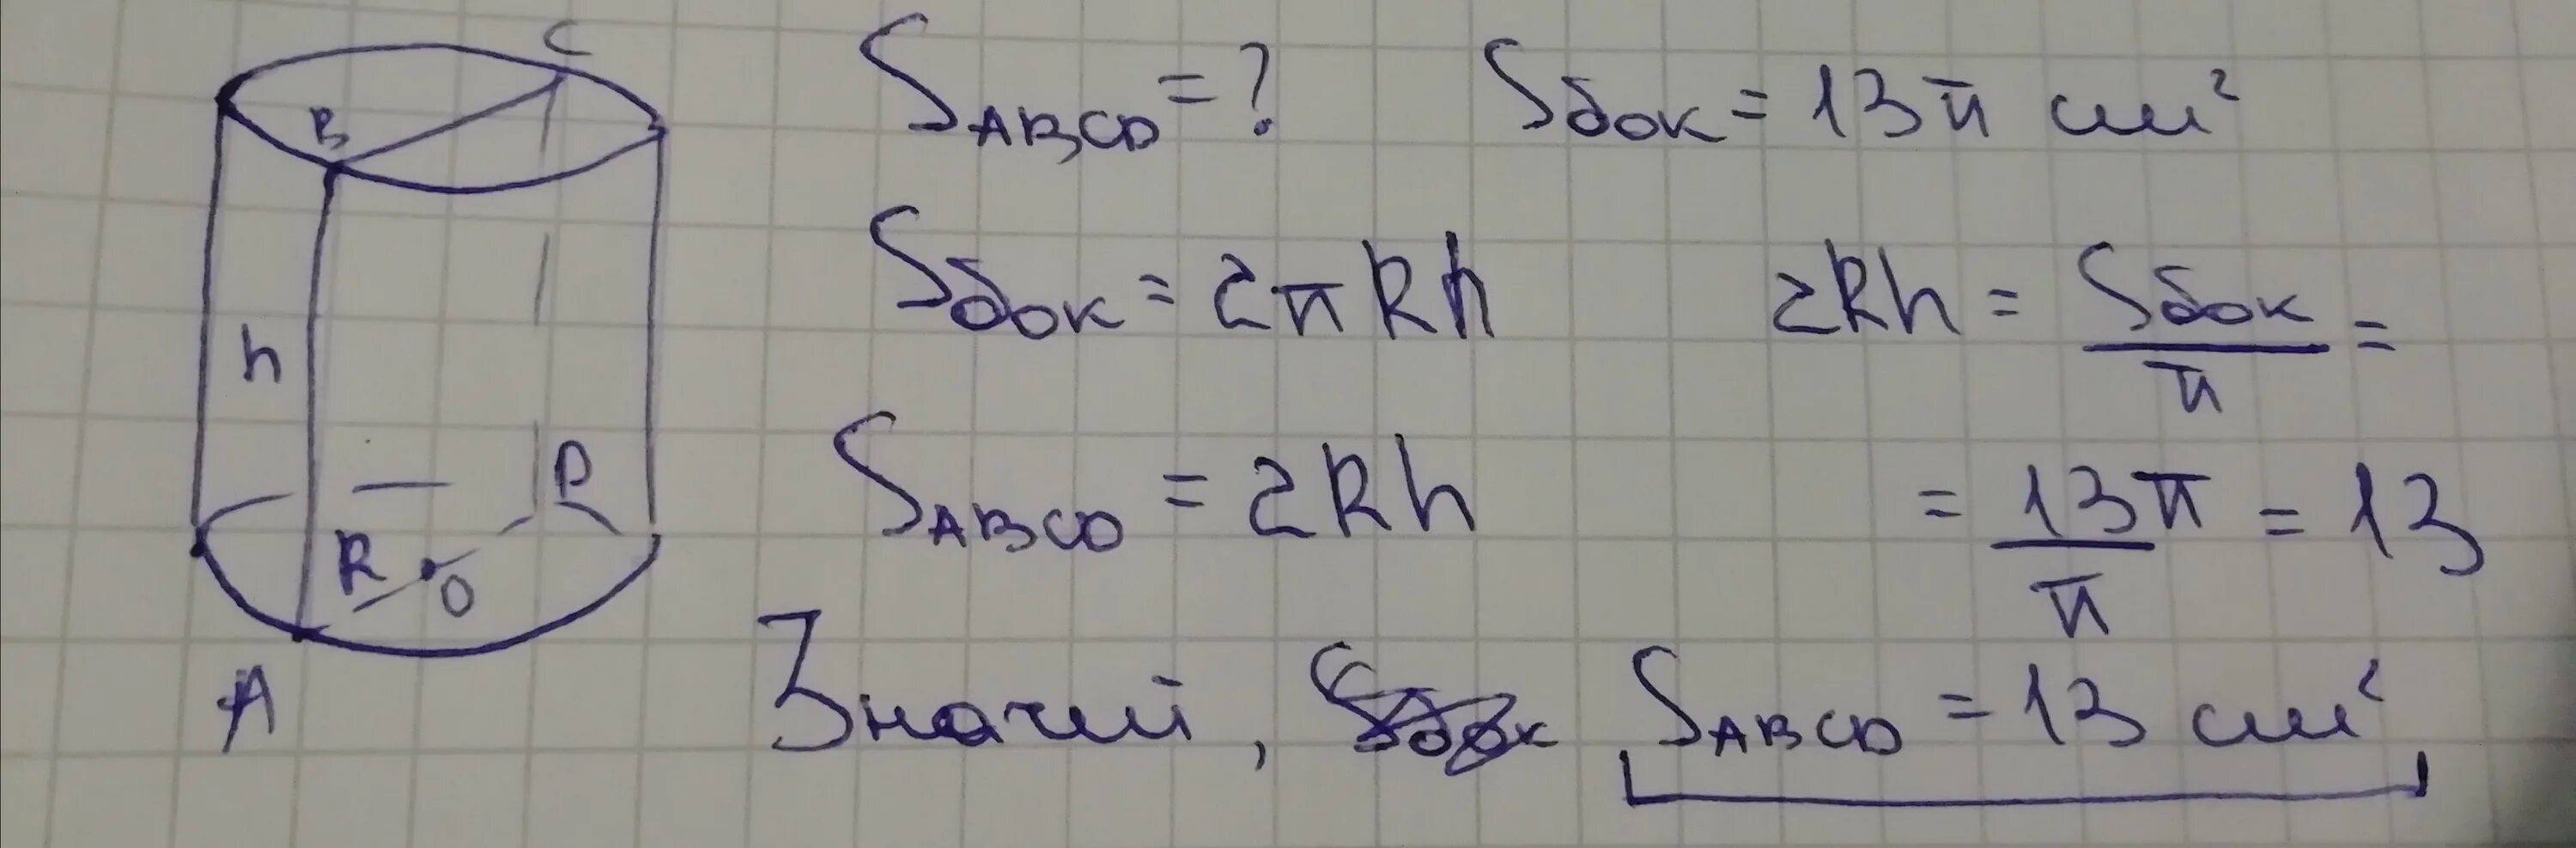 C
B
h
R
O
D
A
S_ABCD = ? Sбок = 13π см²
Sбок = 2πRh 2Rh = Sбок/π =
S_ABCD = 2Rh = 13π/π = 13
Значит, S_ABCD = 13 см²